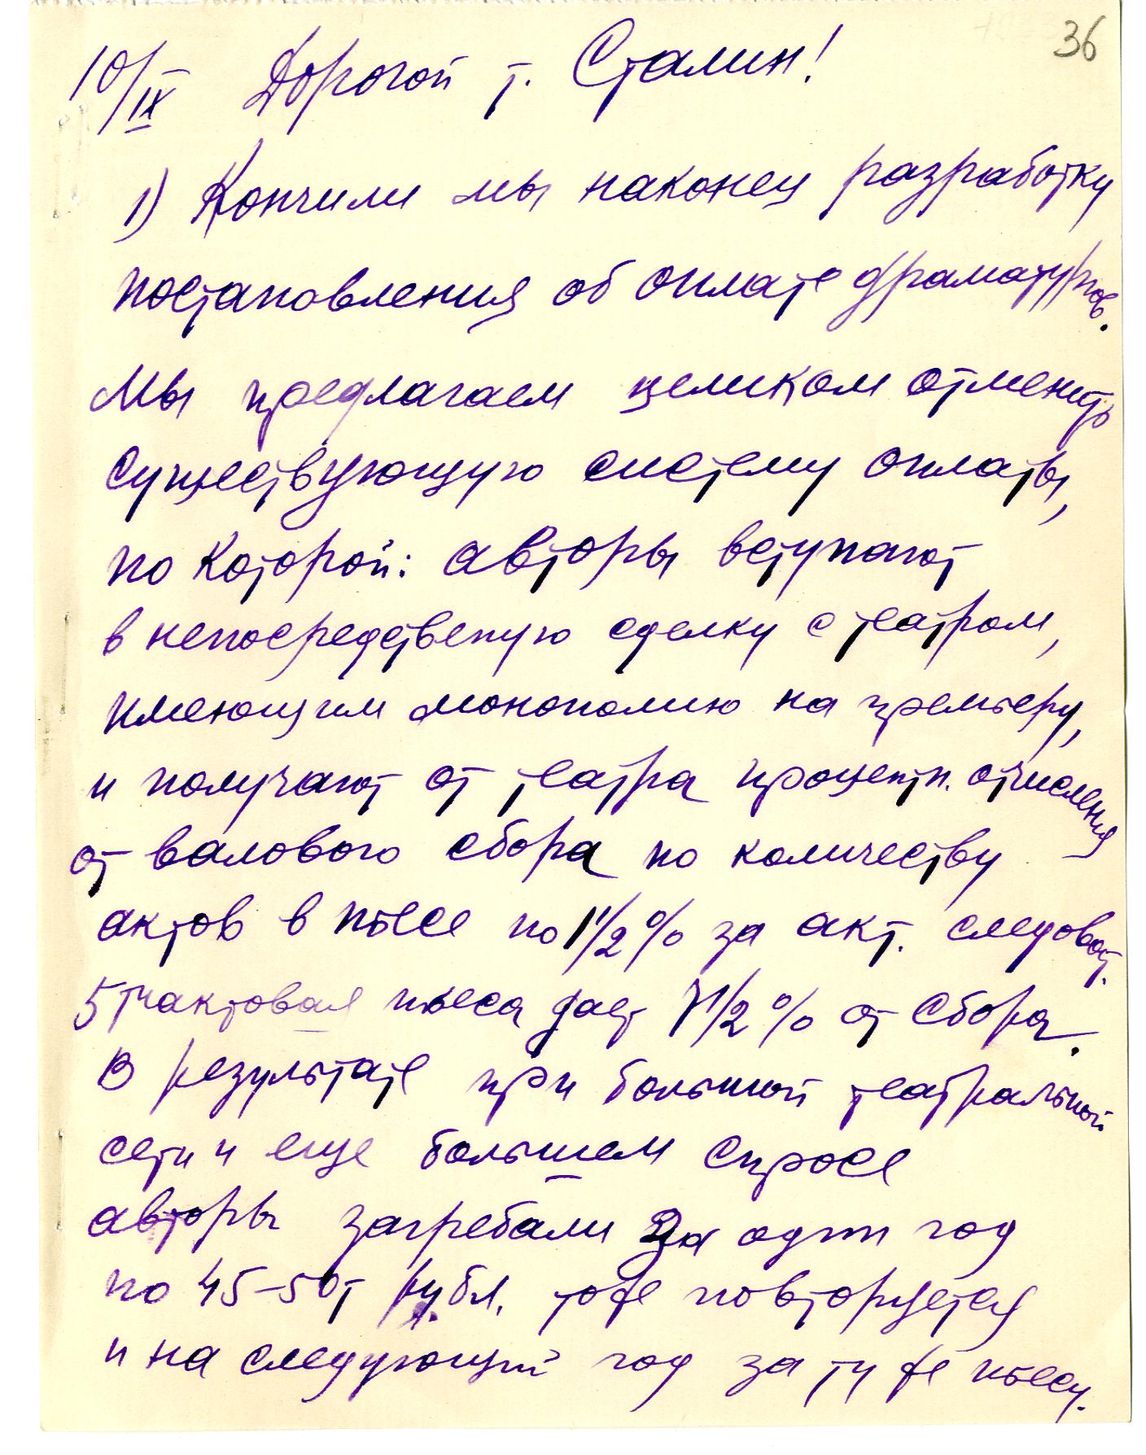 36
10/IX Дорогой т. Сталин!
1) Кончили мы наконец разработку
постановления об оплате драматургов.
Мы предлагаем целиком отменить
существующую систему оплаты,
по которой: авторы вступают
в непосредственую сделку с театром,
имеющим монополию на премьеру,
и получают от театра процентн. отчисления
от валового сбора по количеству
актов в пьесе по 1 1/2 % за акт. следоват.
5тиактовая пьеса дает 7 1/2 % от сбора.
В результате при большой театральной
сети и еще большем спросе
авторы загребали за один год
по 45-50т рубл. тоже повторяется
и на следующий год за ту же пьесу.